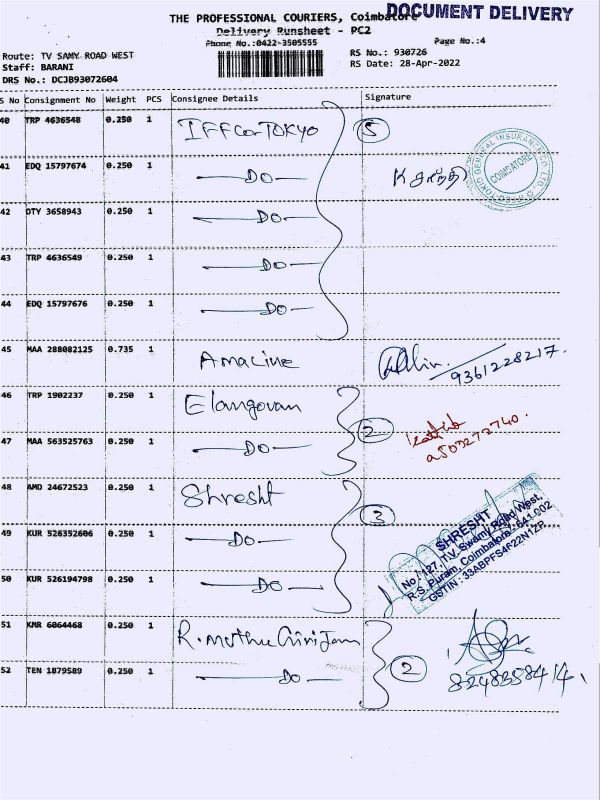 THE PROFESSIONAL COURIERS, Coimbatore
DOCUMENT DELIVERY
Delivery Runsheet - PC2
Phone No.:0422-3505555
Page No.:4
Route: TV SAMY ROAD WEST
Staff: BARANI
DRS No.: DCJB93072604
RS No.: 930726
RS Date: 28-Apr-2022
S No Consignment No Weight PCS Consignee Details Signature
40 TRP 4636548 0.250 1 IFFCO TOKYO 5
41 EDQ 15797674 0.250 1 DO
COIMBATORE
42 OTY 3658943 0.250 1 DO
43 TRP 4636549 0.250 1 DO
44 EDQ 15797676 0.250 1 DO
45 MAA 288082125 0.735 1 Amaline
9361228217.
46 TRP 1902237 0.250 1 Elangovan 2
47 MAA 563525763 0.250 1 DO
48 AMD 24672523 0.250 1 Shresht 3
49 KUR 526352606 0.250 1 DO
50 KUR 526194798 0.250 1 DO
SHRESHT
No / 127, T.V. Swamy Road West,
R.S. Puram, Coimbatore - 641 002
GSTIN : 33ABPFS4F22N1ZP
51 KMR 6064468 0.250 1 2
52 TEN 1879589 0.250 1 DO